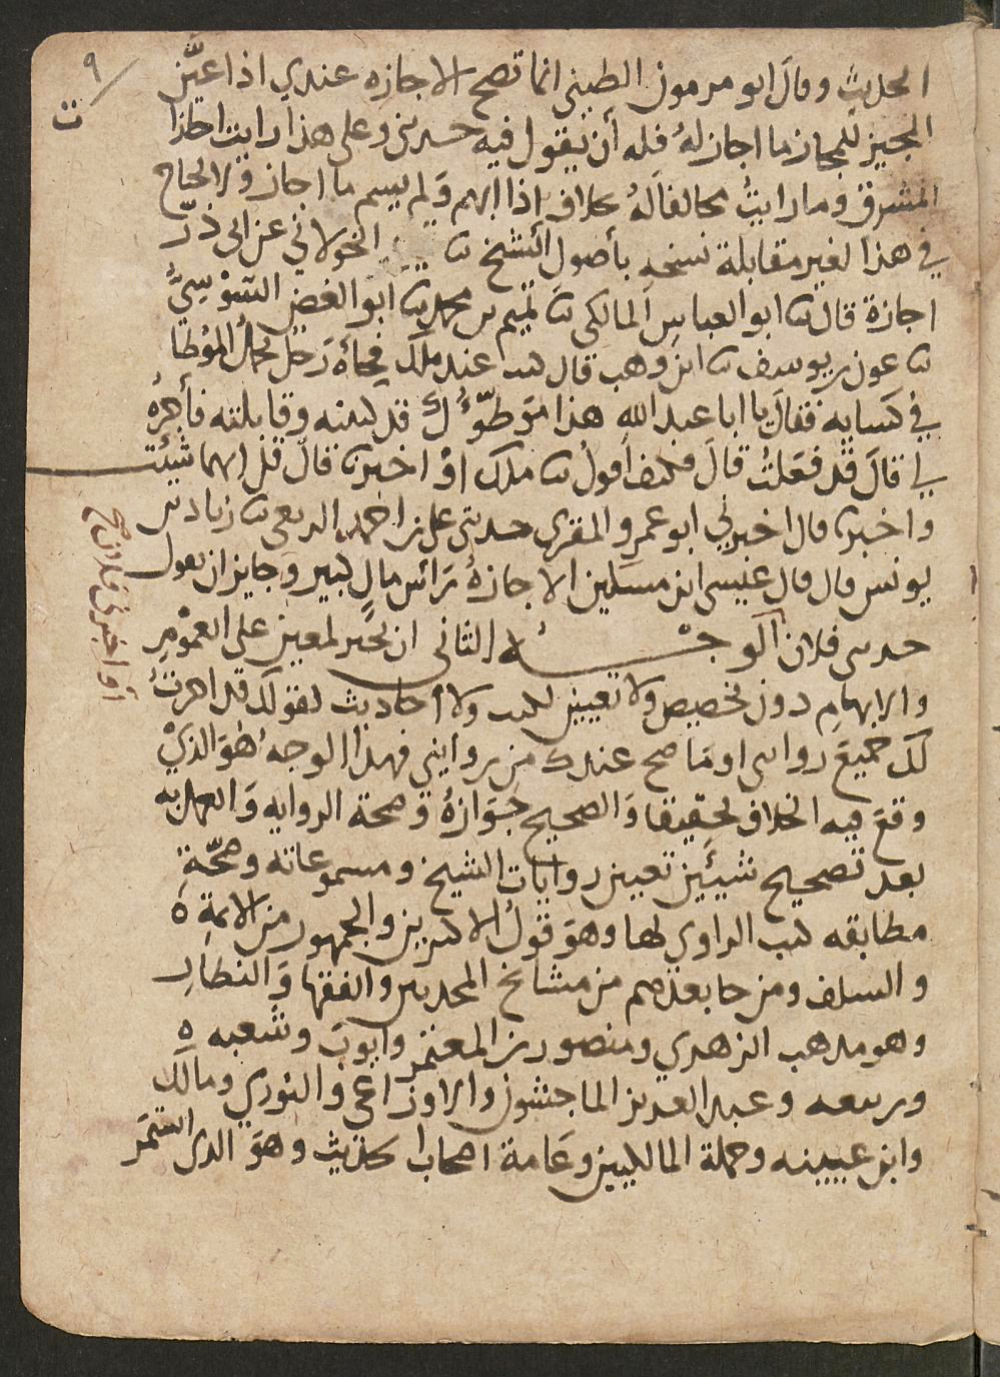 ٩
ت
الحديث وقال ابو مرمون الطبني انما تصح الاجازه عندي اذا عيّن
المجيز للمجاز ما اجاز لهُ فله أن يقول فيه حدثني وعلى هذا رايت اجازات
المشرق وما رايتُ مخالفا لهُ بخلاف إذا ابهم ولم يسم ما اجاز ولا يحتاج
في هذا لغير مقابلة نسخه بأصول الشيخ نا الخولاني عن ابي ذر
اجازة قال نا ابو العباس المالكي نا تميم بن محمد نا ابو الغصن السُّوْسِيُّ
نا عون بن يوسف نا ابن وهب قال كنت عند ملك فجاءَهُ رجل يحمل المُوَطأ
في كسايه فقال يا ابا عبد الله هذا مُوَطّؤُك قد كتبته وقابلته فأجِزْهُ
لي قال قد فعلتُ قال فكيف اقولُ نا ملك اوْ اخبرنا قال قل ايهما شئت
واخبرنا قال اخبرني ابو عمرو المقرى حدثني علي بن احمد الربعي نا زياد بن
يونس قال قال عيسى ابن مسكين الاجازةُ رَأس مالٍ كبير وجايز ان يقول
حدثني فلان
أو اخبرني فلان صح
الوجهُ الثاني ان يجيز لمعين على العمُوْمِ
والابهام دون تخصيص ولا تعيين لكتب ولا احاديث كقولك قد اجزتُ
لك جميع روايتي او مَا صح عندك من روايتي فهذا الوجهُ هُوَ الذيْ
وقعَ فيه الخلاف تحقيقا وَالصحيح جَوَازهُ وَصحة الروايه وَالعمل به
بعد تصحيح شيئَين تعيين روايات الشيخ ومسموعاته وصحّةِ
مطابقه كتب الراوي لها وهوَ قولُ الاكثرين والجمهور من الائمةِ
والسلف ومن جا بعدهم من مشايخ المحدثين والفقها وَالنظارِ
وهو مذهب الزهري ومنصور بن المعتمر وايوبَ وشعبه
وربيعه وعبد العزيز الماجشون والاوزاعي والثوري ومالك
وابن عيينه وجملة المالكيين وعَامة اصحاب الحديث وهوَ الذي استمَر